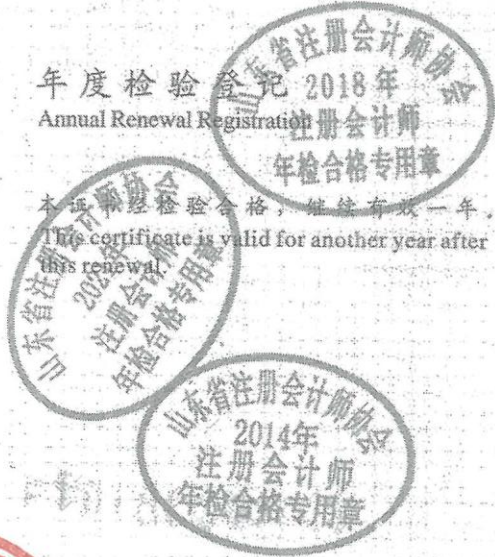 年度检验登记
Annual Renewal Registration
山东省注册会计师协会
2018年
注册会计师
年检合格专用章
本证书经检验合格，继续有效一年。
This certificate is valid for another year after
this renewal.
山东省注册会计师协会
注册会计师
年检合格专用章
山东省注册会计师协会
2014年
注册会计师
年检合格专用章